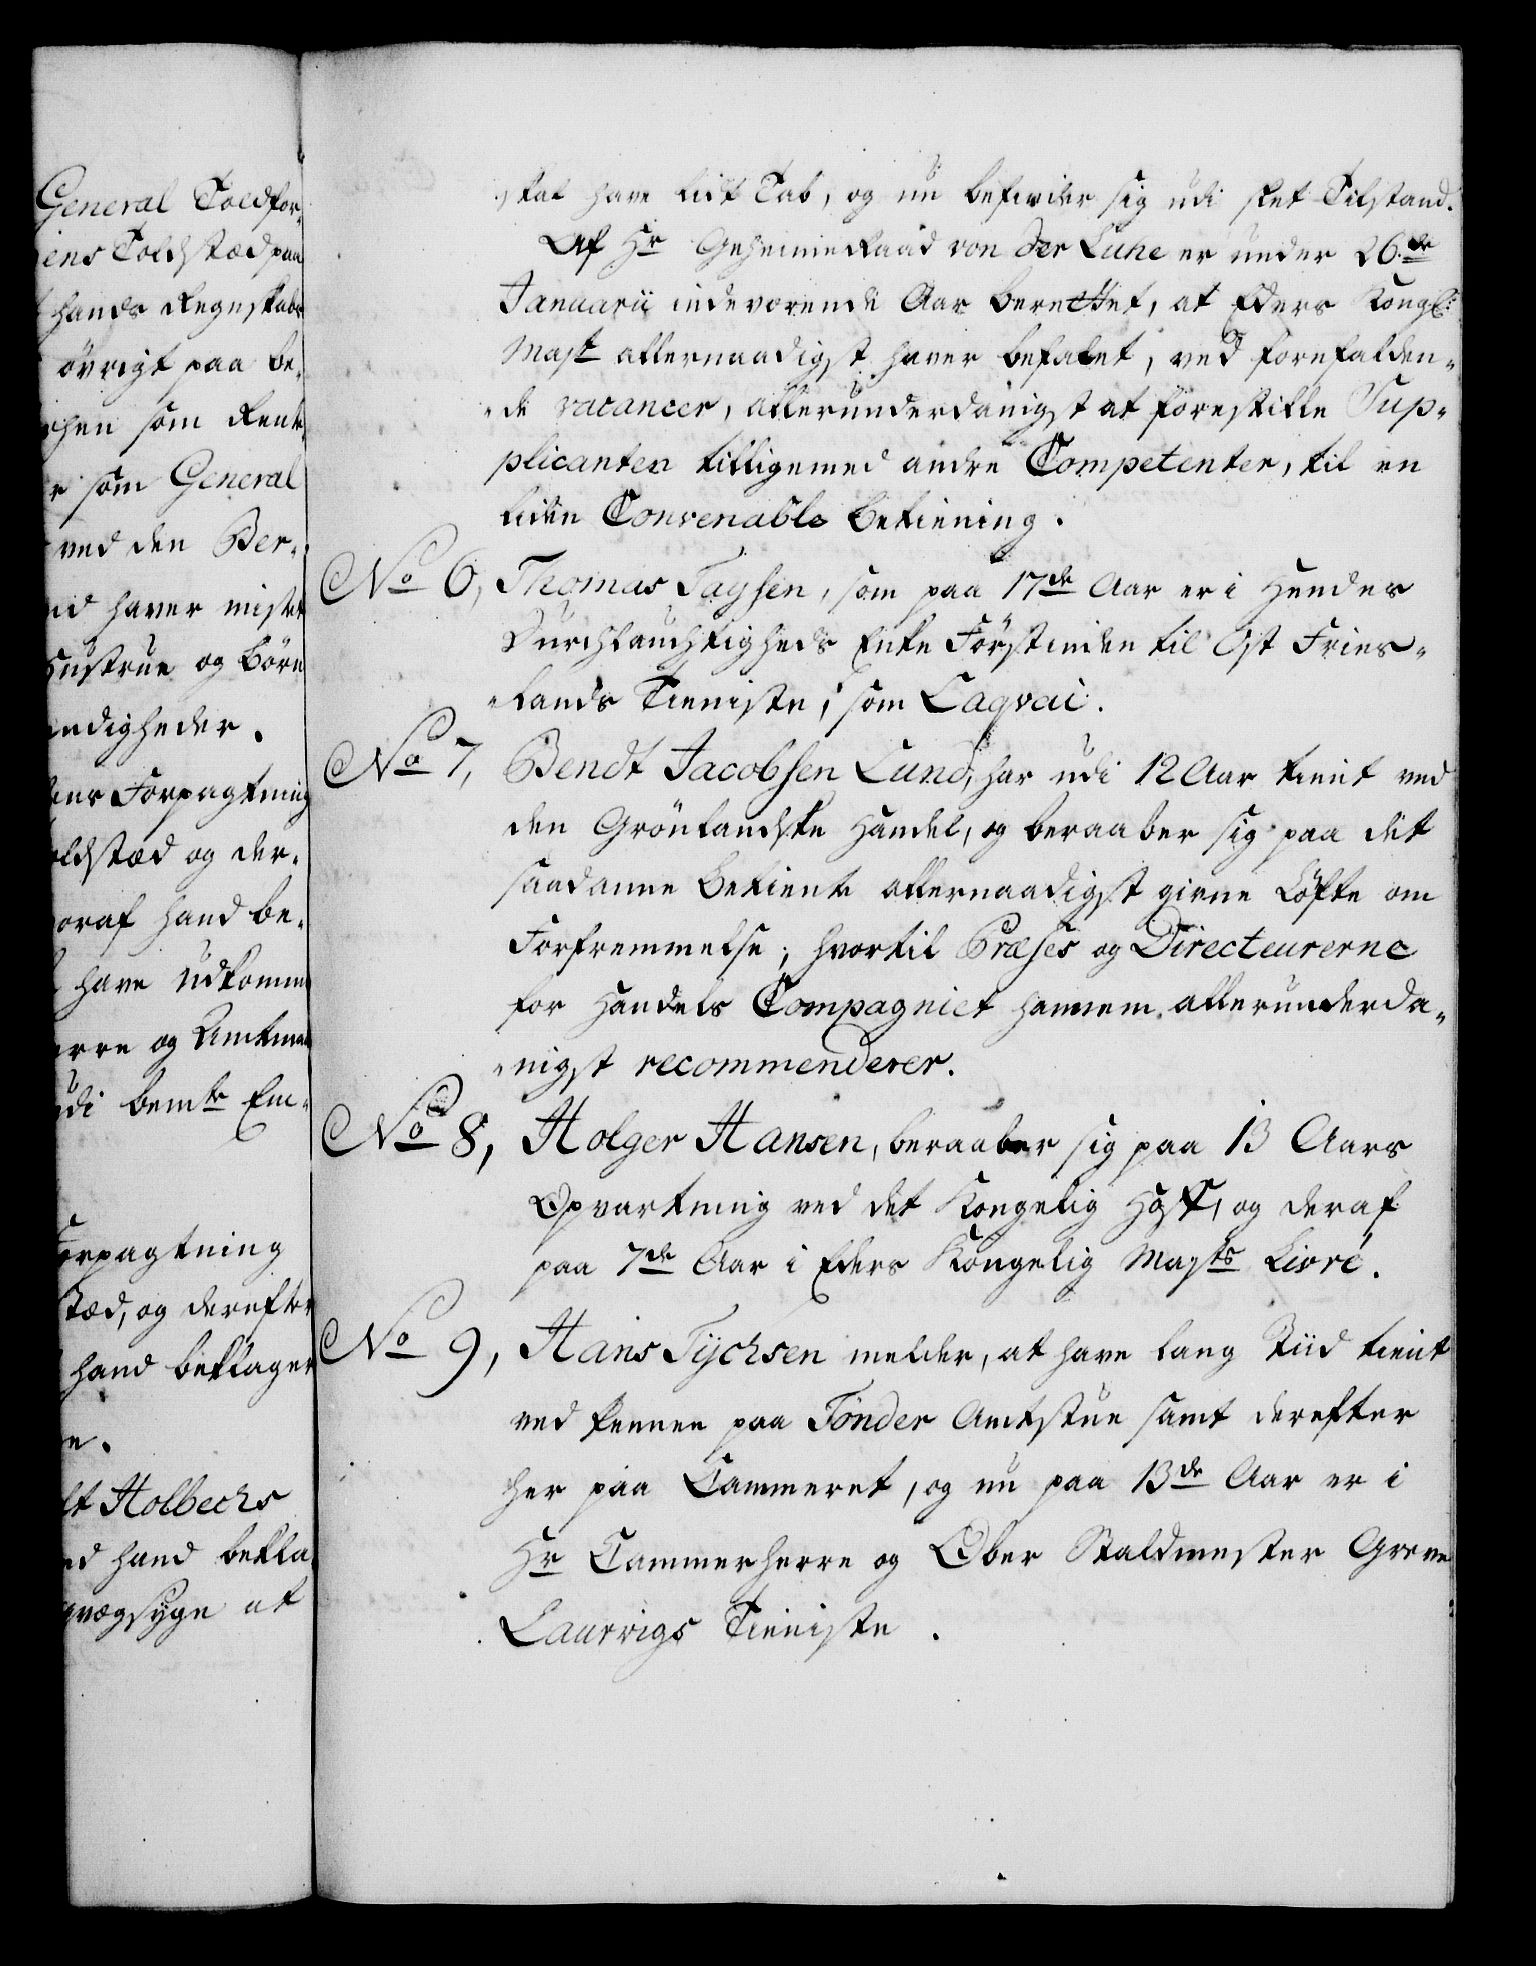 General Toldfor-
ens Toldstæd paa
hands Regnskabs
övrigt paa be-
som Rente
som General
ved den Ber-
haver mistet
Hustrue og Börn
ndigheder.
Forpagtning
oldstæd og der-
oraf hand be-
have udkomme
erre og Amtmand
udi bemte Em-
Forpagtning
stæd, og derefter
hand beklager
Holbechs
hand bekla-
qvægsyge at
skal have lidt Tab, og nu befinder sig udi slet Tilstand.
Af Hr Geheime Raad von der Lühe er under 26de
Januarii indeværende Aar berettet, at Eders Kongl:
Mayt allernaadigst haver befalet, ved forefalden-
-de vacancer, allerunderdanigst at forestille Sup-
plicanten tilligemed andre Competenter, til en
liden Convenable betiening.
No 6, Thomas Taysen, som paa 17de Aar er i Hendes
Durchlauchtigheds Enke Förstinden til Ost Fries-
-lands Tieniste, som Laqvai.
No 7, Bendt Jacobsen Lund, har udi 12 Aar tient ved
den Grönlandske Handel, og beraaber sig paa det
saadanne betiente allernaadigst givne Löfte om
Forfremmelse; hvortil Præses og Directeurerne
for Handels Compagniet hannem allerunderda-
-nigst recommenderer.
No 8, Holger Hansen, beraaber sig paa 13 Aars
Opvartning ved det Kongelig Hoff, og deraf
paa 7de Aar i Eders Kongelig Mayts Livré.
No 9, Hans Tychsen melder, at have lang Tiid tient
ved pennen paa Tönder Amtstue samt derefter
her paa Cammeret, og nu paa 13de Aar er i
Hr Cammerherre og Ober Staldmester Greve
Laurvigs Tieniste.